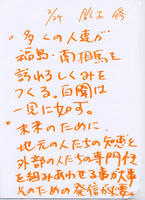 2/24 鈴木 修
・多くの人達が
福島・南相馬を
訪れるしくみを
つくる。百聞は
一見に如ず。
・未来のために、
地元の人たちの知恵と
外部の人たちの専門性
を組みあわせる事が大事
そのための発信が必要。